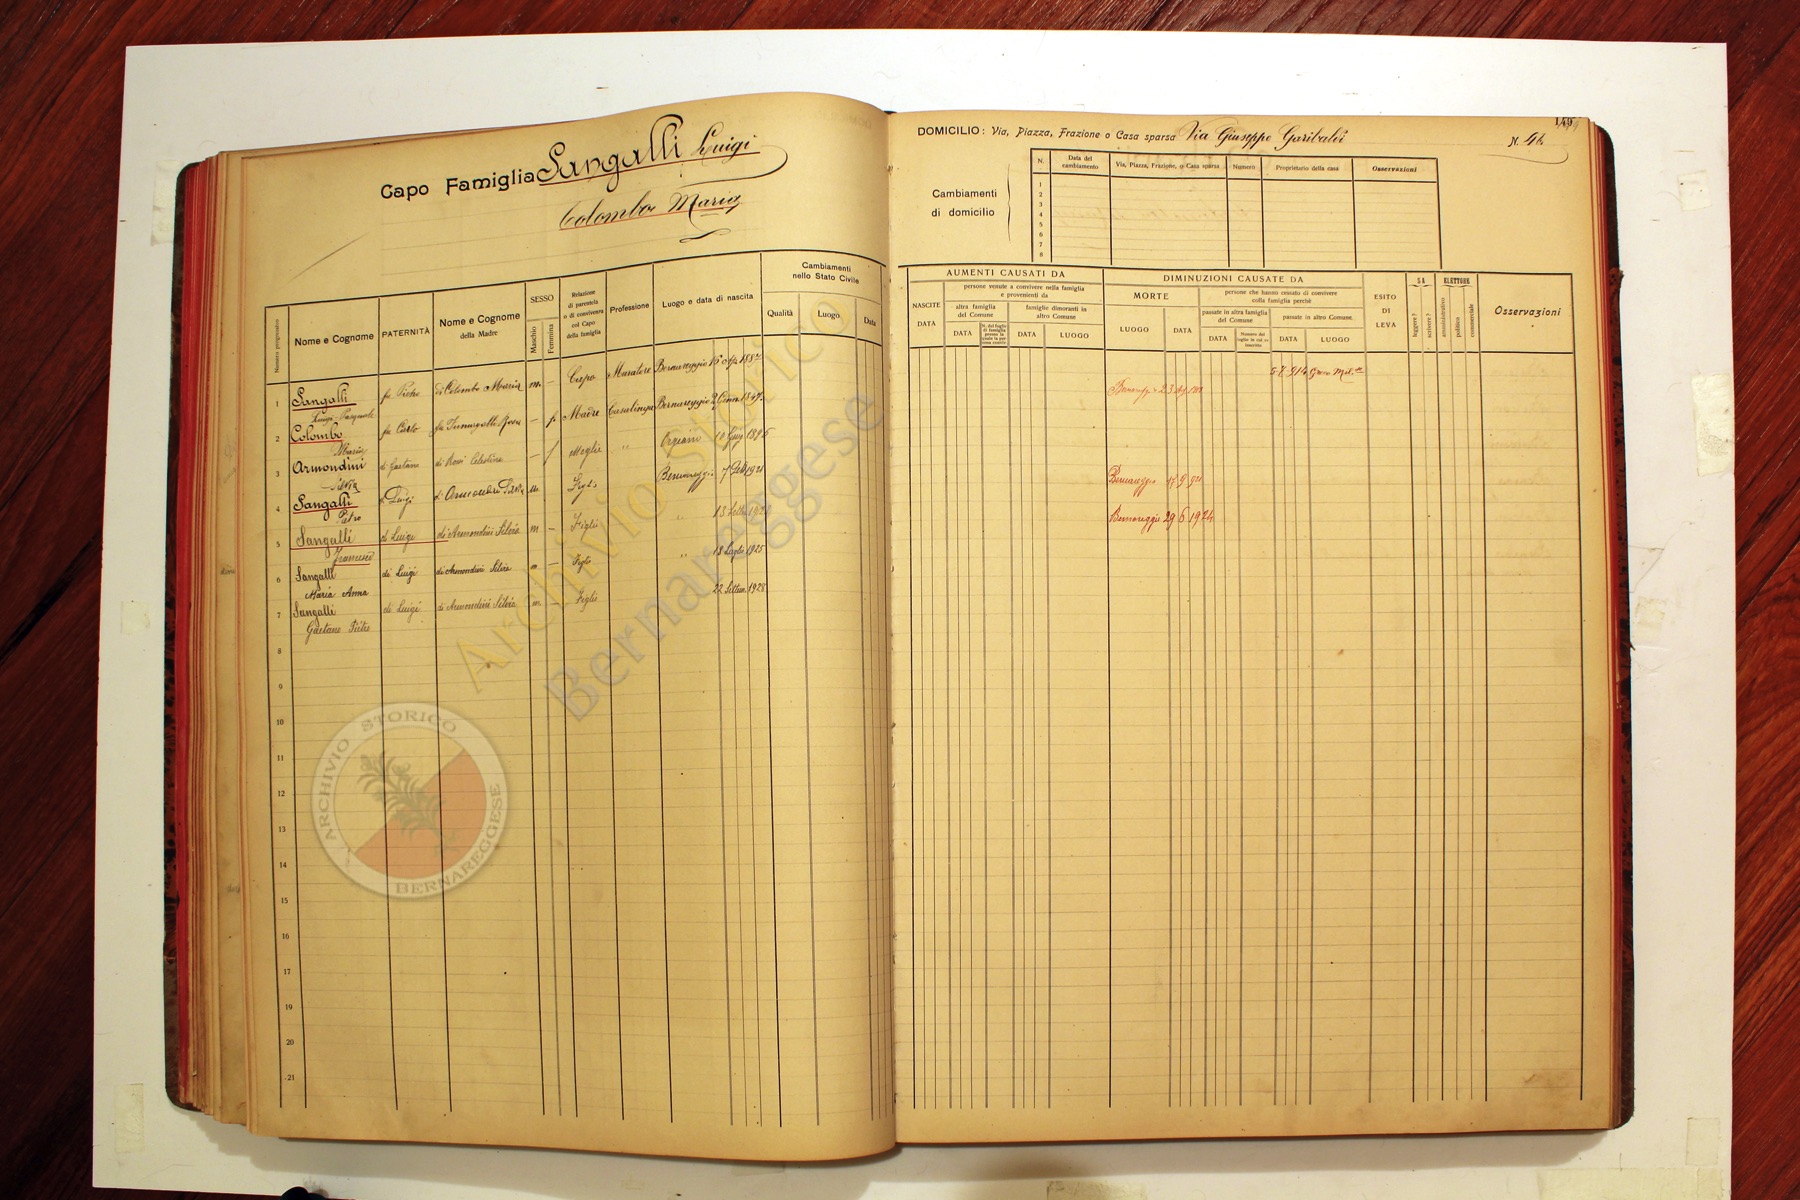 Capo Famiglia Sangalli Luigi
Colombo Maria
Numero progressivo
Nome e Cognome
PATERNITÀ
Nome e Cognome
della Madre
SESSO
Maschio
Femmina
Relazione
di parentela
o di convivenza
col Capo
della famiglia
Professione
Luogo e data di nascita
Cambiamenti
nello Stato Civile
Qualità
Luogo
Data
1 Sangalli fu Pietro di Colombo Maria m. — Capo Muratore Bernareggio 16 1887
Luigi Pasquale
2 Colombo fu Carlo fu Fumagalli Rosa — f Madre Casalinga Bernareggio 2 Genn. 1847
Maria
3 Armondini di Gaetano di Rosi Celestina — f Moglie " 10 1896
Silvia
4 Sangalli di Luigi di Armondini Silvia m. Figlio Bernareggio 7 1921
Pietro
5 Sangalli di Luigi di Armondini Silvia m — Figlio " 13
Francesco
6 Sangalli di Luigi di Armondini Silvia m — Figlio " 18 Luglio 1925
Maria Anna
7 Sangalli di Luigi di Armondini Silvia m — Figlio 22 Settem. 1928
Gaetano Pietro
8
9
10
11
12
13
14
15
16
17
19
20
21
149
DOMICILIO: Via, Piazza, Frazione o Casa sparsa Via Giuseppe Garibaldi N.
Cambiamenti
di domicilio
N.
Data del
cambiamento
Via, Piazza, Frazione, o Casa sparsa
Numero
Proprietario della casa
Osservazioni
1
2
3
4
5
6
7
8
AUMENTI CAUSATI DA
NASCITE
DATA
persone venute a convivere nella famiglia
e provenienti da
altra famiglia
del Comune
DATA
N. del foglio
di famiglia
famiglie dimoranti in
altro Comune
DATA
LUOGO
DIMINUZIONI CAUSATE DA
MORTE
LUOGO
DATA
persone che hanno cessato di convivere
colla famiglia perchè
passate in altra famiglia
del Comune
DATA
Numero del
foglio in cui si
inscritto
passate in altro Comune.
DATA
LUOGO
ESITO
DI
LEVA
SA
leggere?
scrivere?
ELETTORE
amministrativo
politico
commerciale
Osservazioni
5 7 914
Bernareggio 23
Bernareggio 17 9
Bernareggio 29 6 1924
Archivio Storico
Bernareggese
ARCHIVIO STORICO
BERNAREGGESE